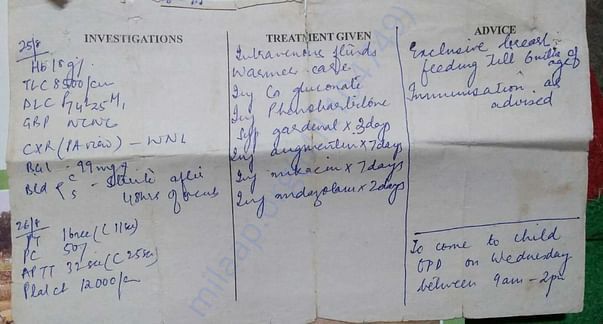 INVESTIGATIONS
25/8
Hb 18g%
TLC 8500/cm
DLC P74 L25 M1
GBP NCNC
CXR (PA view) - WNL
Bld C/S - Sterile after
48hrs of
26/8
PT 16sec (C 11sec)
PC 50%
APTT 32 sec (C 25sec)
Platct 12000/cm
TREATMENT GIVEN
Intravenous fluids
Warmer care
Inj Ca gluconate
Inj Phenobarbitone
Syp gardenal x 3days
Inj augmentin x 7days
Inj mikacin x 7 days
Inj midazolam x 2days
ADVICE
Exclusive breast
feeding till 6mths of
age
Immunisation as
advised
To come to child
OPD on Wednesday
between 9am - 2pm
milaap.org